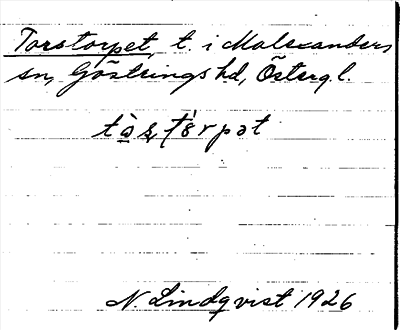 Torstorpet, t. i Malexanders
sn, Göstrings hd, Östergl.
tòs̩tórpət
N Lindqvist 1926